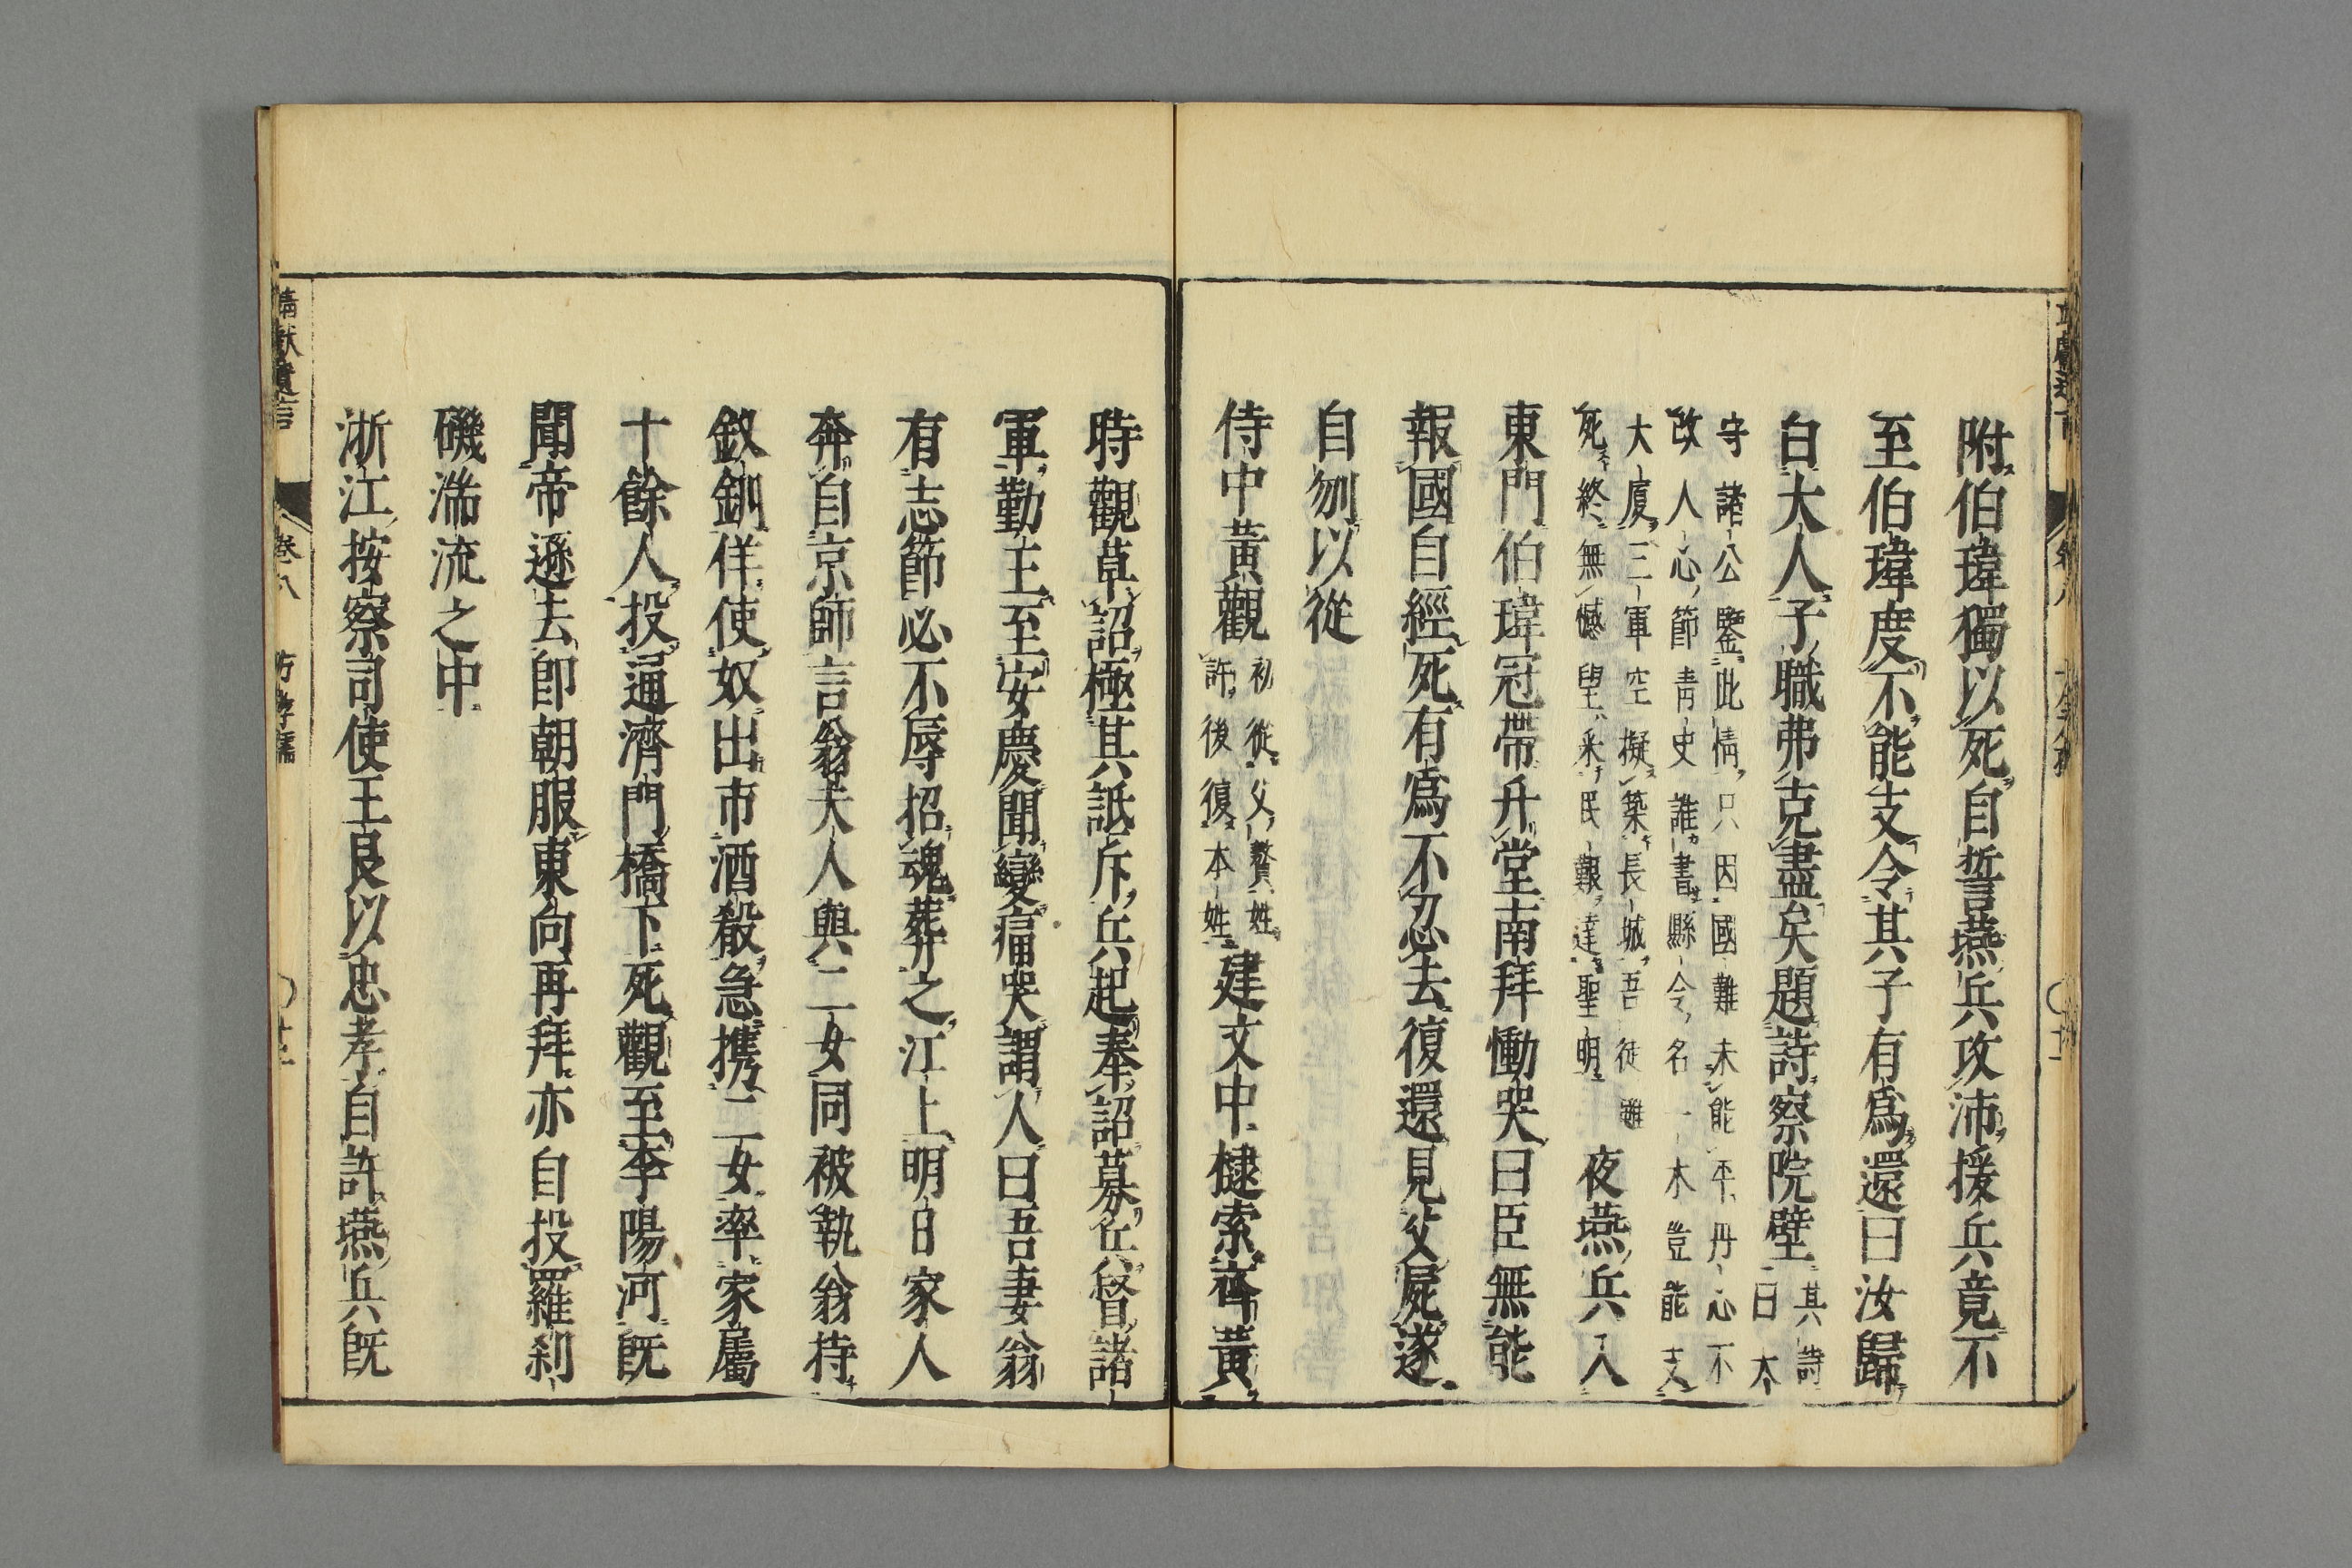 附伯瑋獨以死自誓燕兵攻沛援兵竟不
至伯瑋度不能支令其子有爲還曰汝歸
白大人子職弗克盡矣題詩察院壁其詩
曰太
守諸公鑒此情只因國難未能平丹心不
改人心節青史誰書縣令名一木豈能支
大廈三軍空擬築長城吾徒雖
死終無憾望采民艱達聖明夜燕兵入
東門伯瑋冠帶升堂南拜慟哭曰臣無能
報國自經死有爲不忍去復還見父屍遂
自刎以從
侍中黃觀初從父贅姓
許後復本姓建文中棣索齊黃
時觀草詔極其詆斥兵起奉詔募兵督諸
軍勤王至安慶聞變痛哭謂人曰吾妻翁
有志節必不辱招魂葬之江上明日家人
奔自京師言翁夫人與二女同被執翁持
釵釧佯使奴出市酒殽急携二女率家屬
十餘人投通濟門橋下死觀至李陽河既
聞帝遜去卽朝服東向再拜亦自投羅刹
磯湍流之中
浙江按察司使王良以忠孝自許燕兵既
靖獻遺言 卷八 方孝孺